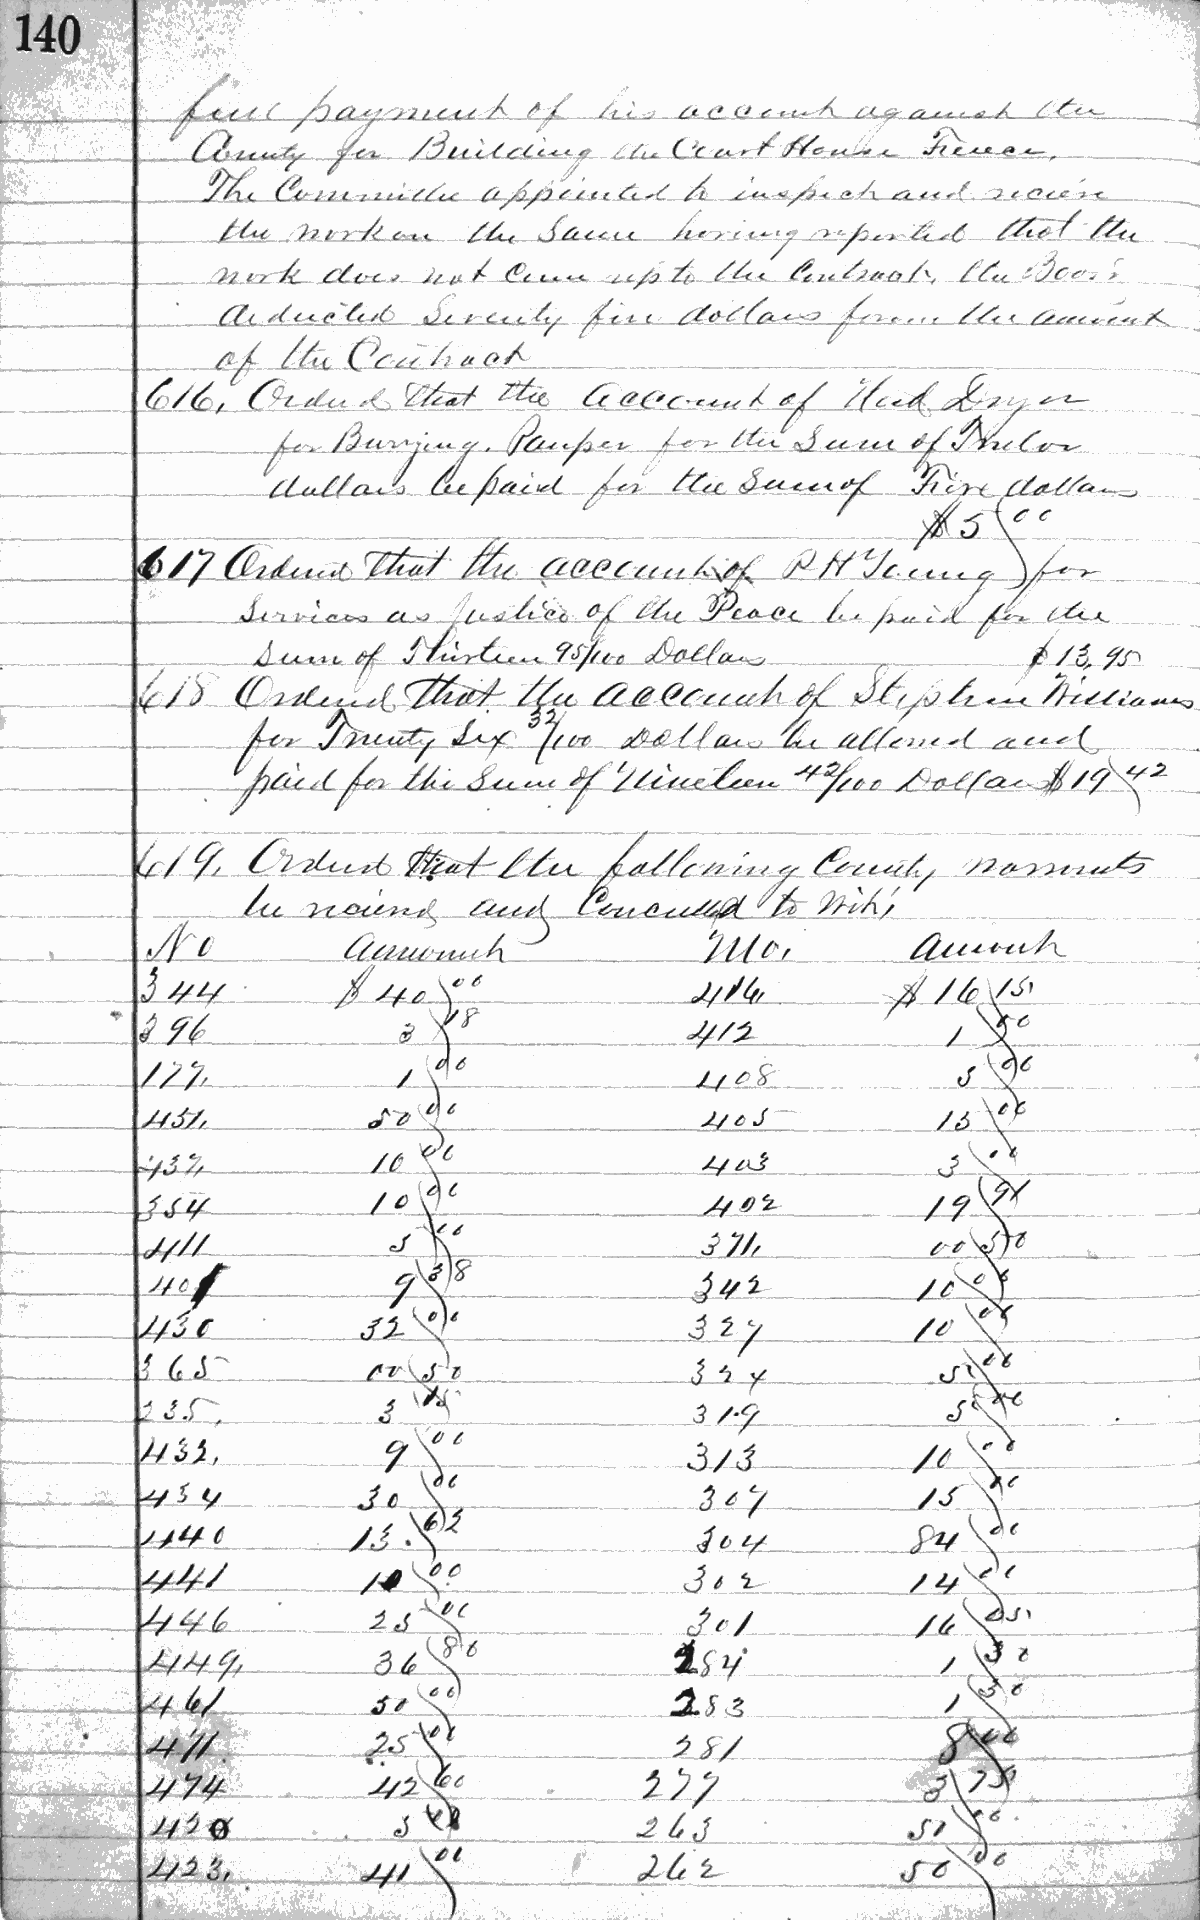 140
full payment of his account against the
County for Building the Court House Fence.
The Committee appointed to inspect and recieve
the work on the Same having reported that the
work does not Come up to the Contract, the Board
deducted Seventy five dollars from the amount
of the Contract
616. Ordered that the account of Ned Dryer
for Burrying. Pauper for the Sum of Twelve
dollars be paid for the Sum of Five dollars
$5 00
617 Ordered that the account of P H Young for
Services as Justice of the Peace be paid for the
Sum of Thirteen 95/100 Dollars $13.95
618 Ordered that the account of Stephen Williams
for Twenty Six 32/100 Dollars be allowed and
paid for the Sum of Nineteen 42/100 Dollars $19 42
619. Ordered that the following County warrants
be recieved and Cancelled to Wit;
No Amount No. Amount
344 $40 00 416. $16 15
396 3 18 412 1 50
177. 1 00 408 5 00
451. 50 00 405 13 00
437. 10 00 403 3 00
354 10 00 402 19 91
411 5 00 371. 00 50
401 9 38 342 10 00
430 32 00 327 10 00
365 00 50 324 5 00
235. 3 15 319 5 00
432. 9 00 313 10 00
434 30 00 307 15 00
440 13. 62 304 84 00
441 10 00 302 14 00
446 25 00 301 16 05
449. 36 80 284 1 30
461 50 00 283 1 30
471. 25 00 281 8 00
474 42 60 277 3 75
420 5 263 51 00
423. 41 00 262 50 00